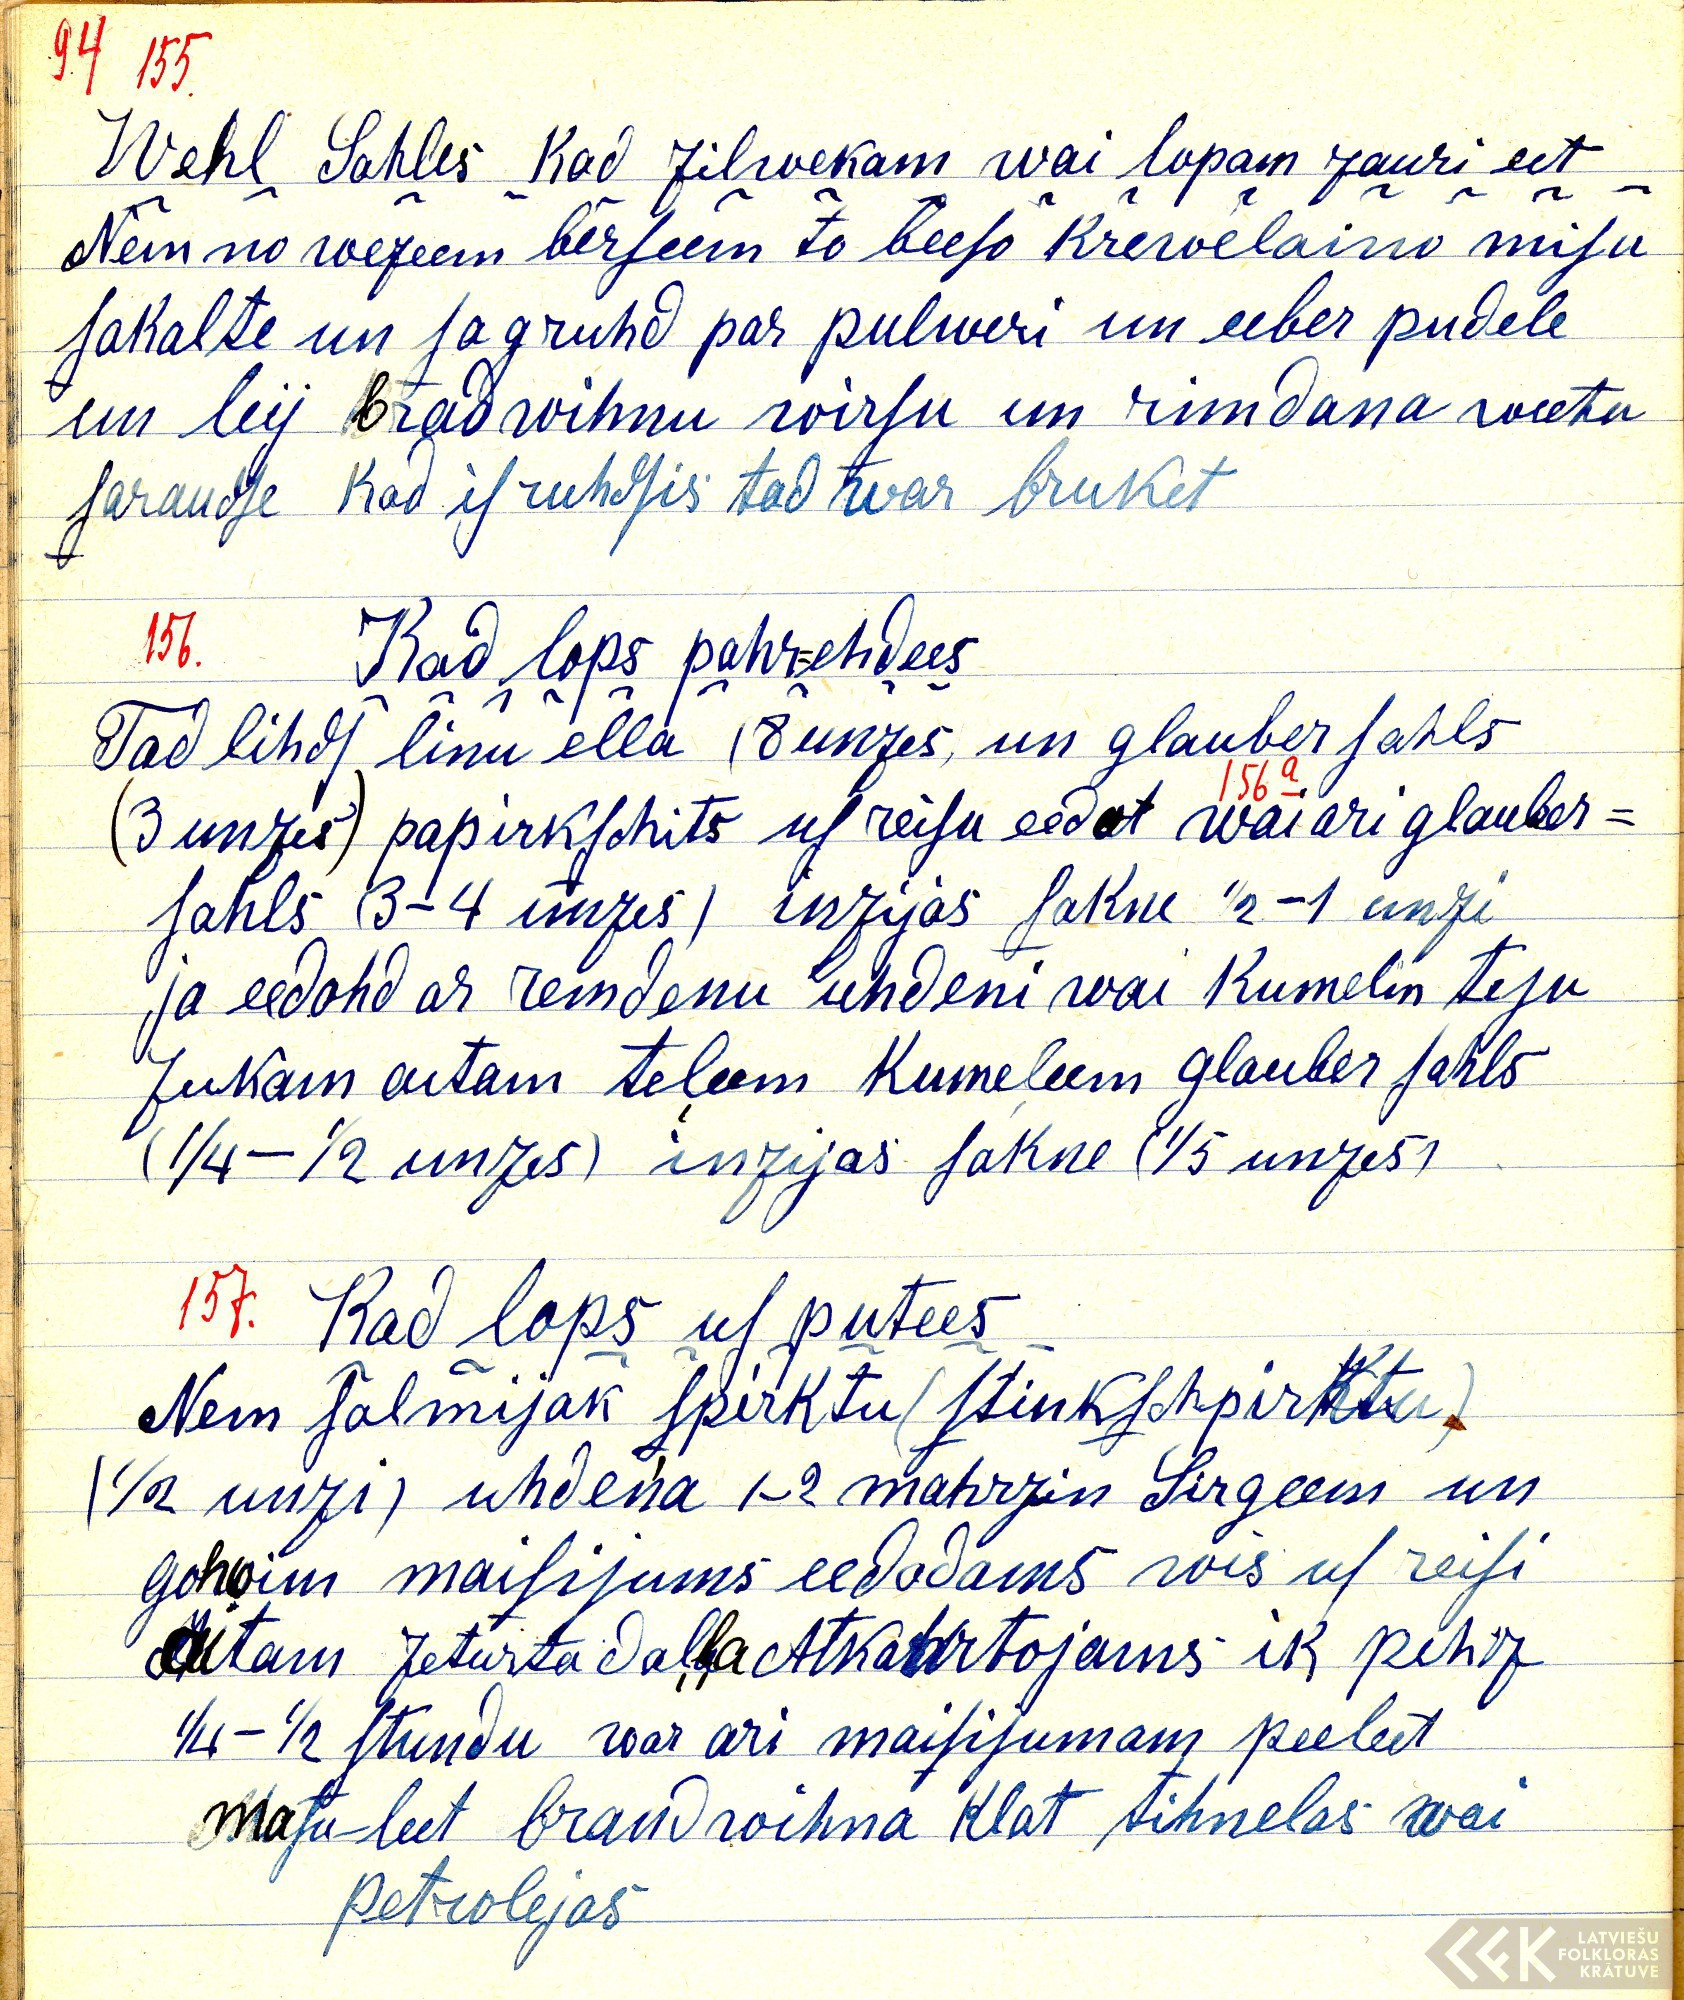 94 155.
Wehl Sahles Kad zilwekam wai lopam zauri eet
Nem no wezeem berseem to beeso Krewelaino misu
sakalte un sagruhd par pulweri un eeber pudele
un leij bradwihnu wirsu un rimdana weetu
saraudse Kad isruhdsis tad war bruket
156. Kad lops pahr=ehdees
Tad lihds linu ella (8 unzes, un glauber sahls
156 a
(3 unzes) papirkschits us reisu eedot wai ari glauber=
sahls (3-4 unzes) inzijas sakne 1/2-1 unzi
ja eedohd ar remdenu uhdeni wai Kumelin teju
zukam aitam teļeem Kumeļeem glauber sahls
(1/4-1/2 unzes) inzijas sakne (1/5 unzes)
157. Kad lops us putees
Nem salmijak spirktu (stinkschpirktu)
(1/2 unzi) uhdena 1-2 mahrzin Sirgeem un
gohwim maisijums eedodams wis us reisi
aitam zeturta daļļa Atkahrtojams ik pehz
1/4-1/2 stundu war ari maisijumam peeleet
masu-leet brandwihna Klat tihnelas wai
petrolejas
LATVIEŠU
FOLKLORAS
KRĀTUVE